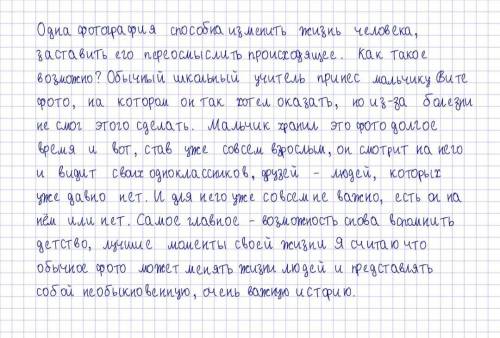 Одна фотография способна изменить жизнь человека,
заставить его переосмыслить происходящее. Как такое
возможно? Обычный школьный учитель принес мальчику Вите
фото, на котором он так хотел оказать, но из-за болезни
не смог этого сделать. Мальчик хранил это фото долгое
время и вот, став уже совсем взрослым, он смотрит на него
и видит своих одноклассников, друзей - людей, которых
уже давно нет. И для него уже совсем не важно, есть он на
нём или нет. Самое главное - возможность снова вспомнить
детство, лучшие моменты своей жизни Я считаю что
обычное фото может менять жизни людей и представлять
собой необыкновенную, очень важную историю.